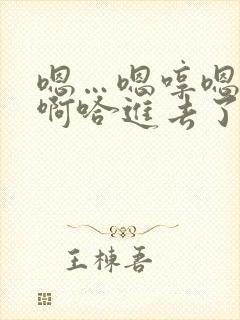 嗯…嗯哼嗯
啊哈进去了
王栋吾